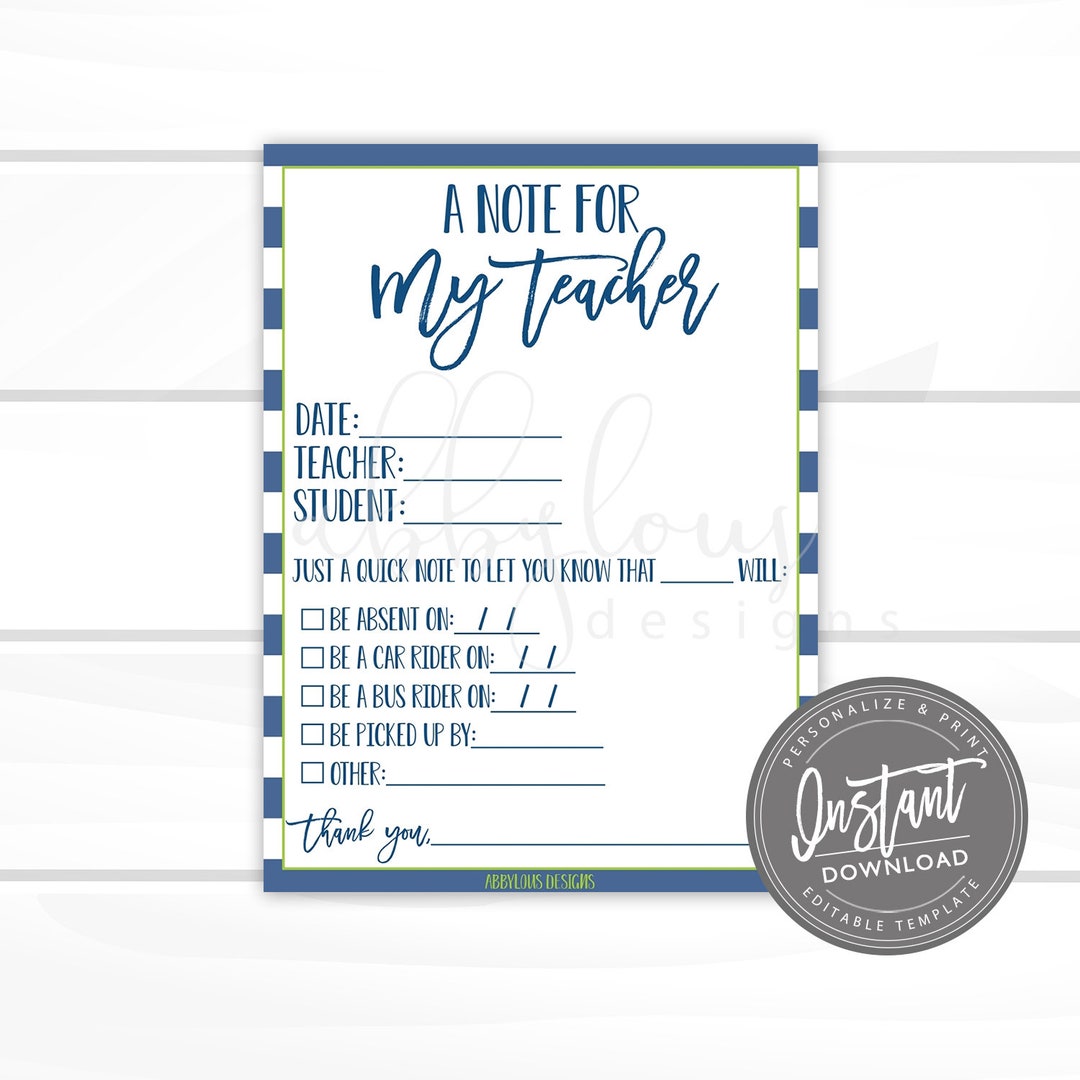 A NOTE FOR
My teacher
DATE:
TEACHER:
STUDENT:
abbylous
designs
JUST A QUICK NOTE TO LET YOU KNOW THAT ______ WILL:
☐ BE ABSENT ON: / /
☐ BE A CAR RIDER ON: / /
☐ BE A BUS RIDER ON: / /
☐ BE PICKED UP BY:
☐ OTHER:
thank you,
ABBYLOUS DESIGNS
PERSONALIZE & PRINT
Instant
DOWNLOAD
EDITABLE TEMPLATE